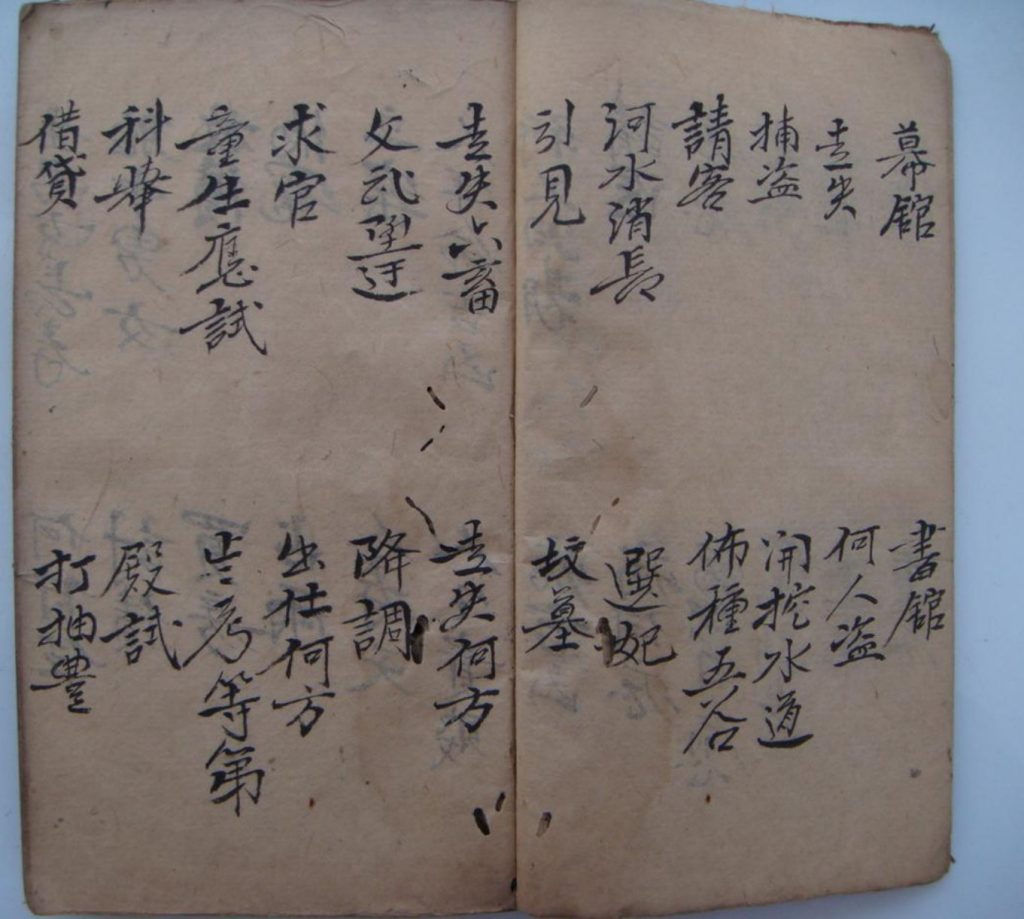 幕館
書館
走失
何人盜
捕盜
開挖水道
請客
佈種五谷
河水消長
選妃
引見
坟墓
走失六畜
走失何方
文武陞迁
降調
求官
出仕何方
童生應試
考等第
科舉
殿試
借貸
打抽豊